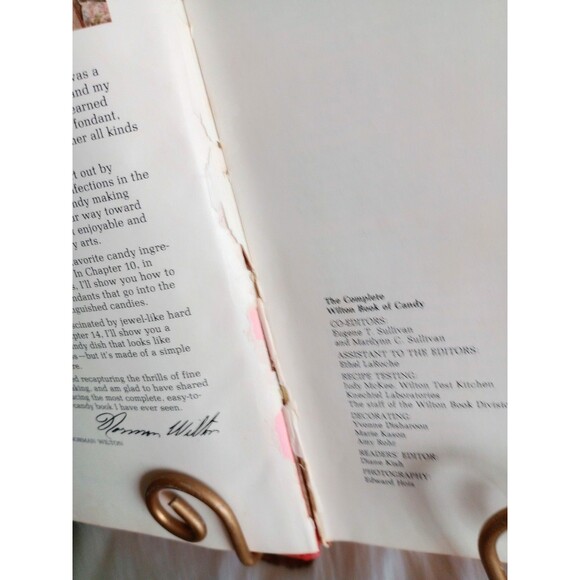 was a
and my
earned
fondant,
her all kinds
t out by
fections in the
dy making
ur way toward
enjoyable and
y arts.
favorite candy ingre-
In Chapter 10, in
s, I'll show you how to
ndants that go into the
nguished candies.
scinated by jewel-like hard
pter 14. I'll show you a
ndy dish that looks like
s—but it's made of a simple
re.
ed recapturing the thrills of fine
king, and am glad to have shared
ucing the most complete, easy-to-
candy book I have ever seen.
Norman Wilton
NORMAN WILTON
The Complete
Wilton Book of Candy
CO-EDITORS:
Eugene T. Sullivan
and Marilynn C. Sullivan
ASSISTANT TO THE EDITORS:
Ethel LaRoche
RECIPE TESTING:
Judy McKee, Wilton Test Kitchen
Knechtel Laboratories
The staff of the Wilton Book Divisio
DECORATING:
Yvonne Disharoon
Marie Kason
Amy Rohr
READERS EDITOR:
Diane Kish
PHOTOGRAPHY:
Edward Hois